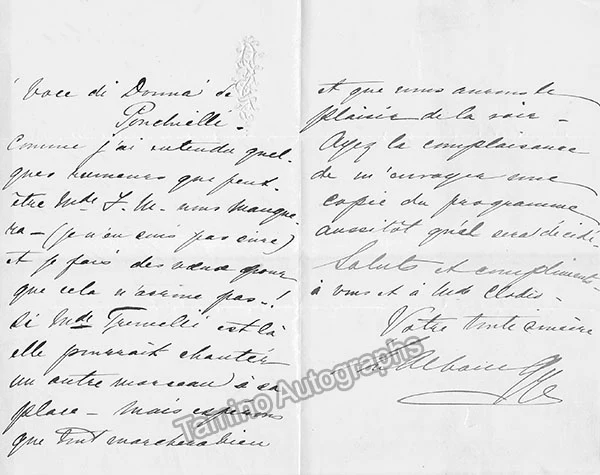 'Voce di Donna' de
Ponchielli -
Comme j'ai entendu quel-
ques rumeurs que peut-
être Mde S. M- nous manque-
ra - (je n'en suis pas sûre)
et je fais des vœux pour
que cela n'arrive pas -!
Si Mde Tremelli est là
elle pourrait chanter
un autre morceau à sa
place - mais espérons
que tout marchera bien
et que nous aurons le
plaisir de la voir -
Ayez la complaisance
de m'envoyer une
copie du programme
aussitôt qu'il sera décidé.
Saluts et compliments
à vous et à Mde
Votre toute sincère
Albani
Tamino Autographs